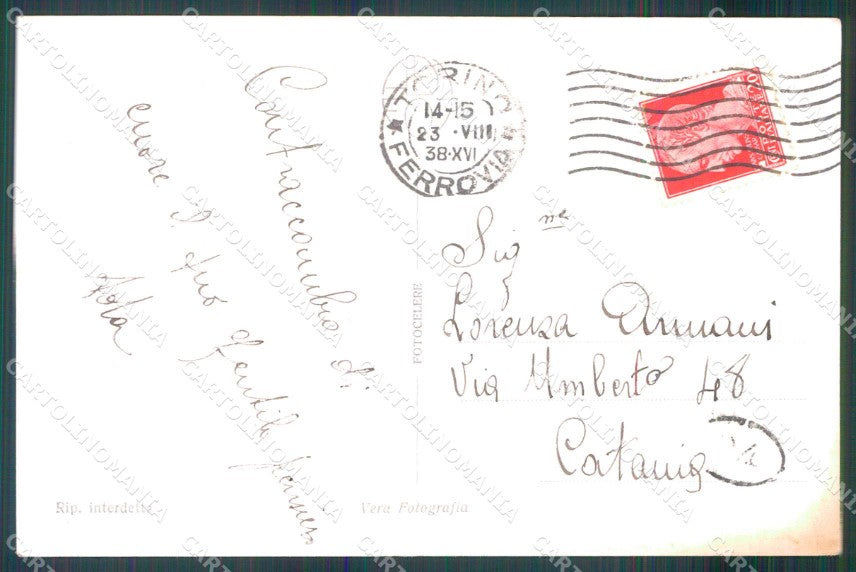 TORINO
14-15
23 · VIII
38 · XVI
FERROVIA
Contraccambio di
cuore il tuo gentile
Sig.na
Lorenza Armani
Via Umberto 48
Catania
FOTOCELERE
Rip. interdetta
Vera Fotografia
CARTOLINOMANIA